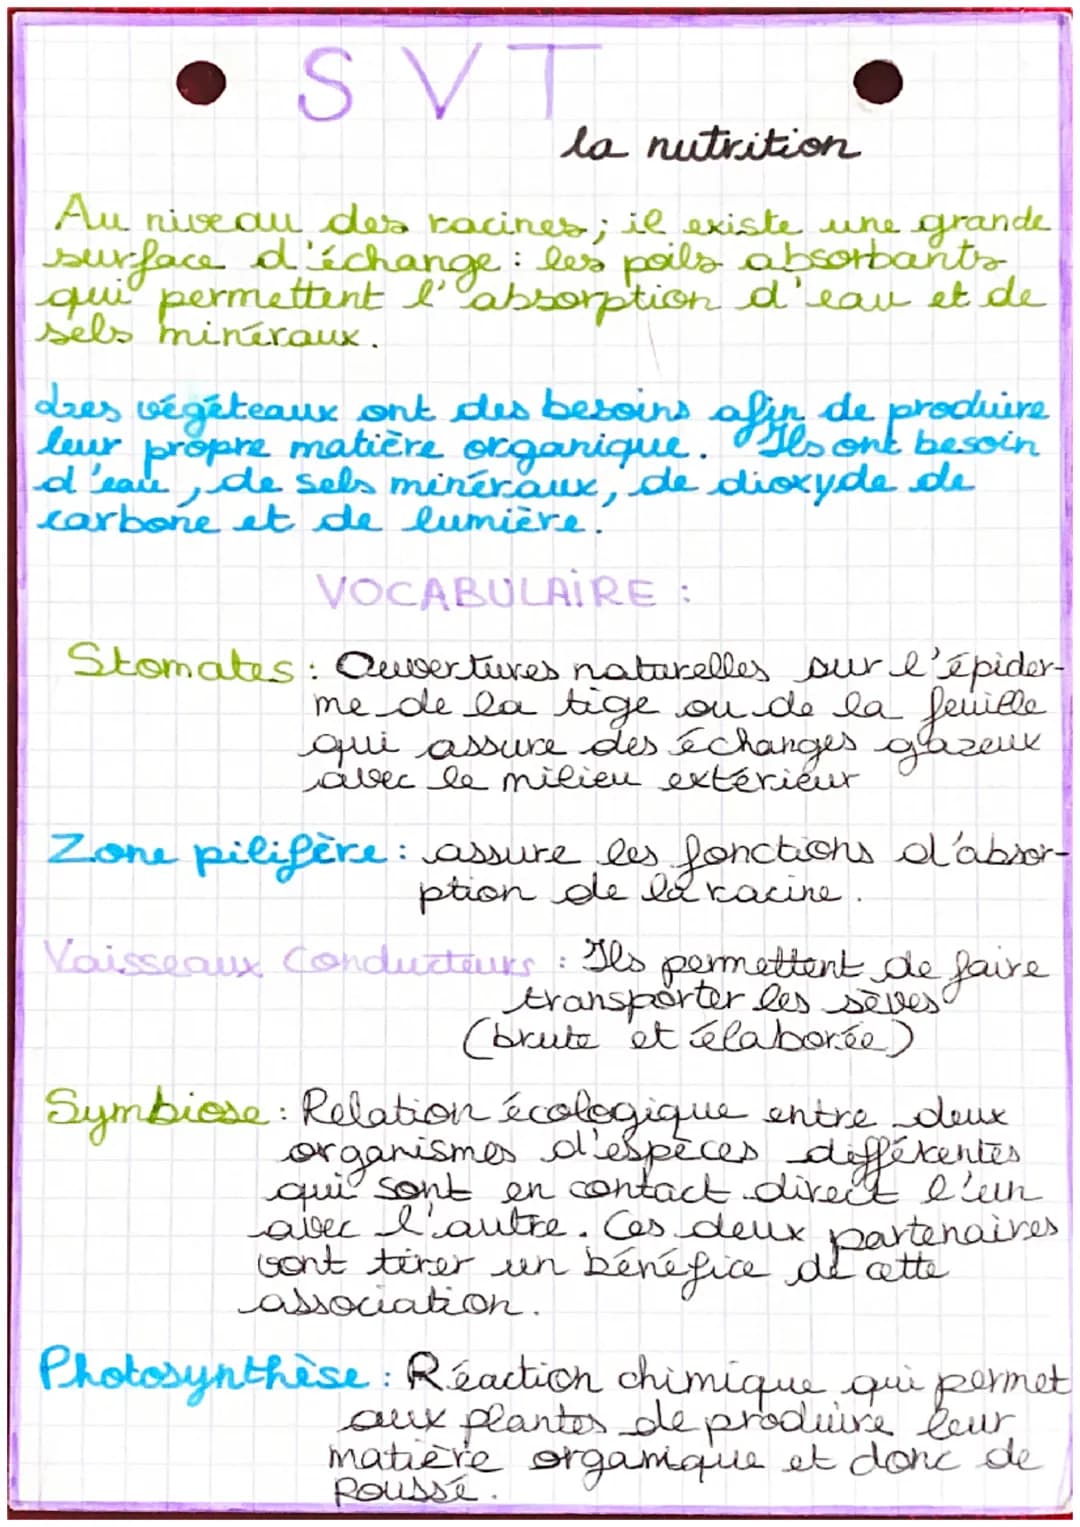 SVT
la nutrition
Au niveau des racines ; il existe une grande
surface d'échange : les poils absorbants
qui permettent l'absorption d'eau et de
sels minéraux.
Les végéteaux ont des besoins afin de produire
leur propre matière organique. Ils ont besoin
d'eau, de sels minéraux, de dioxyde de
carbone et de lumière.
VOCABULAIRE :
Stomates : Ouvertures naturelles sur l'épider-
me de la tige ou de la feuille
qui assure des échanges gazeux
avec le milieu extérieur
Zone pilifère : assure les fonctions d'absor-
ption de la racine.
Vaisseaux Conducteurs : Ils permettent de faire
transporter les sèves
(brute et élaborée)
Symbiose : Relation écologique entre deux
organismes d'espèces différentes
qui sont en contact direct l'un
avec l'autre. Ces deux partenaires
vont tirer un bénéfice de cette
association.
Photosynthèse : Réaction chimique qui permet
aux plantes de produire leur
matière organique et donc de
poussé.